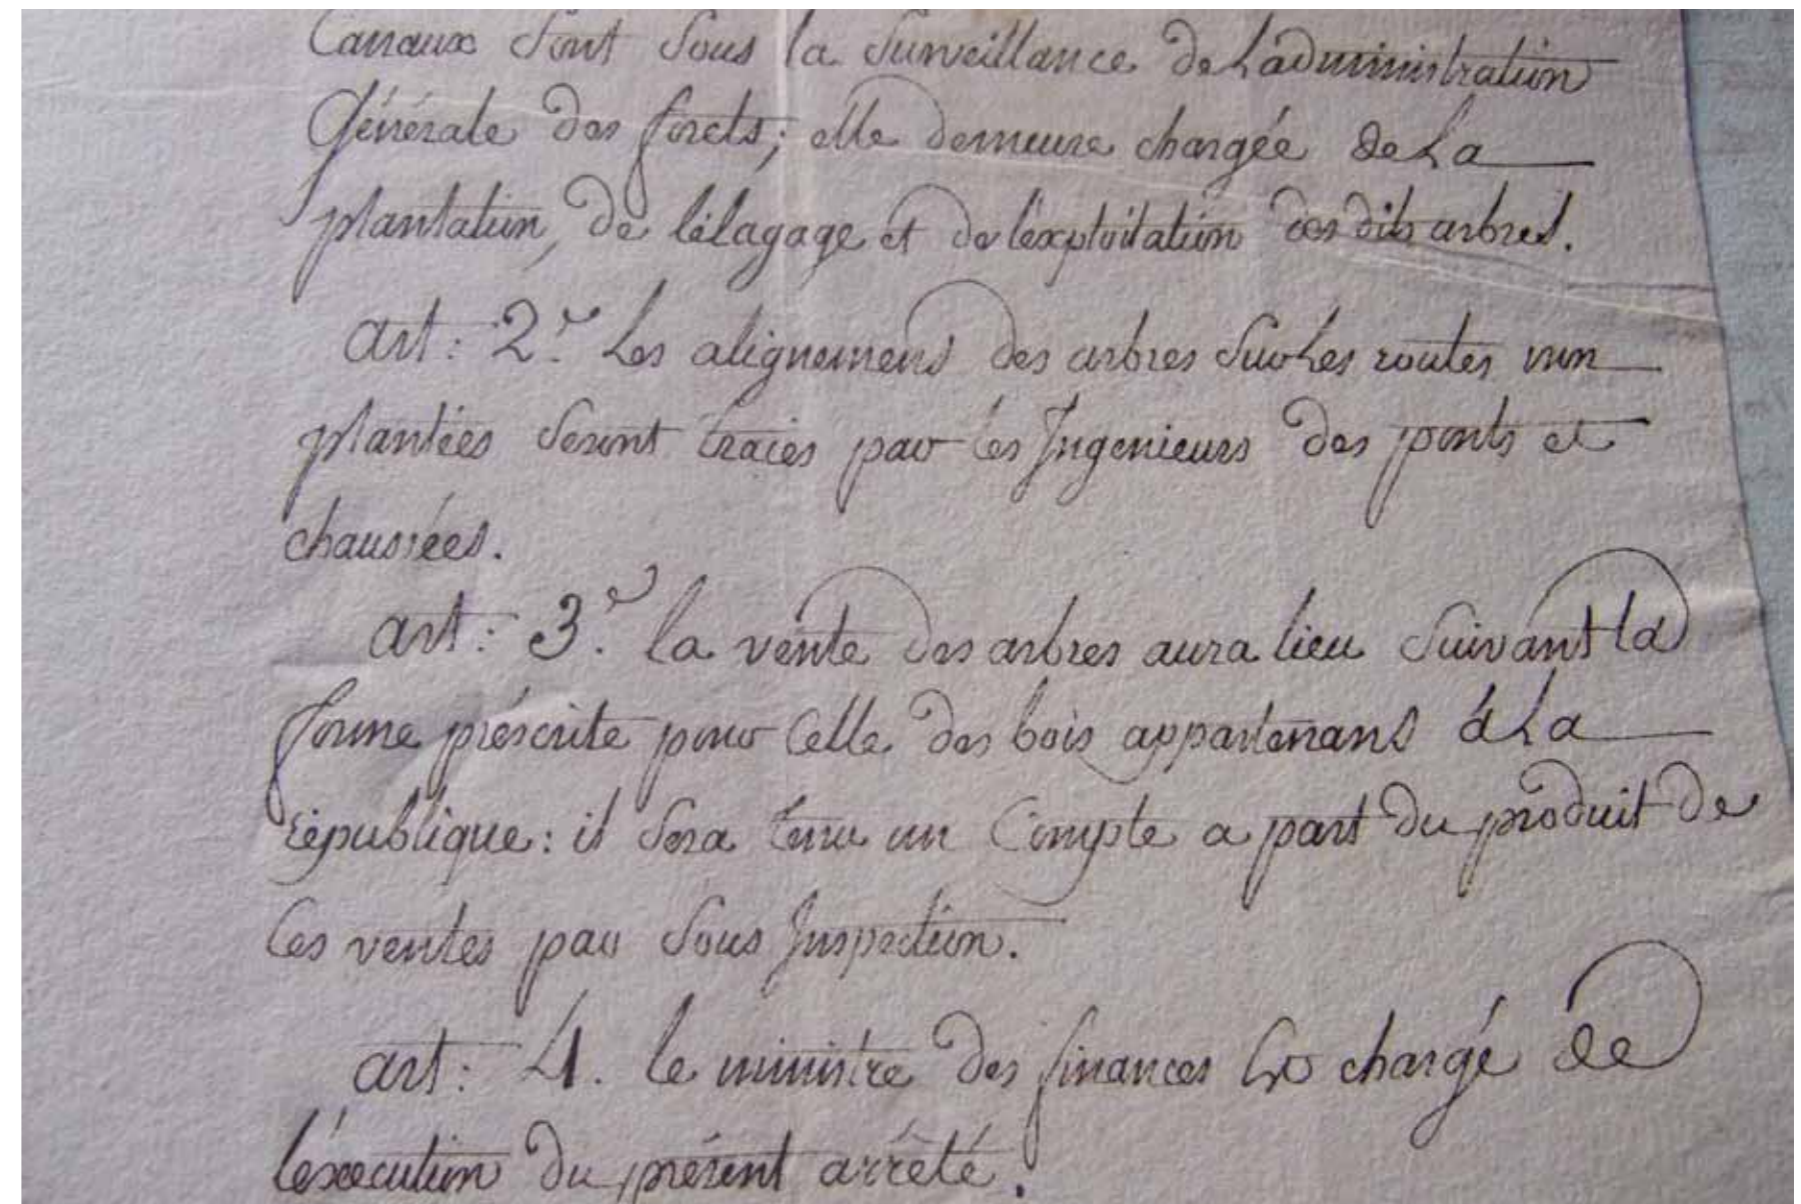 Canaux sont sous la surveillance de L'administration
Générale des forets; elle demeure chargée de La
plantation, de l'élagage et de l'exploitation des dits arbres.
art: 2.e Les alignemens des arbres sur Les routes non
plantées seront tracés par les Ingenieurs des ponts et
chaussées.
art: 3.e la vente des arbres aura lieu suivant la
forme préscrite pour Celle des bois appartenans à La
république: il sera tenu un Compte a part du produit de
Ces ventes par sous Inspection.
art: 4. le ministre des finances est chargé de
l'éxécution du présent arrêté.